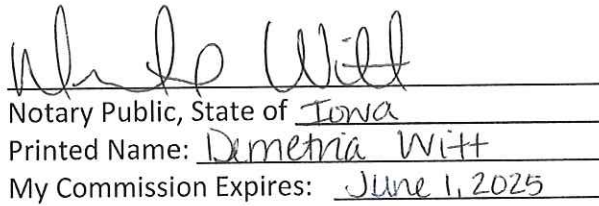 Witt
Notary Public, State of Iowa
Printed Name: Demetria Witt
My Commission Expires: June 1, 2025